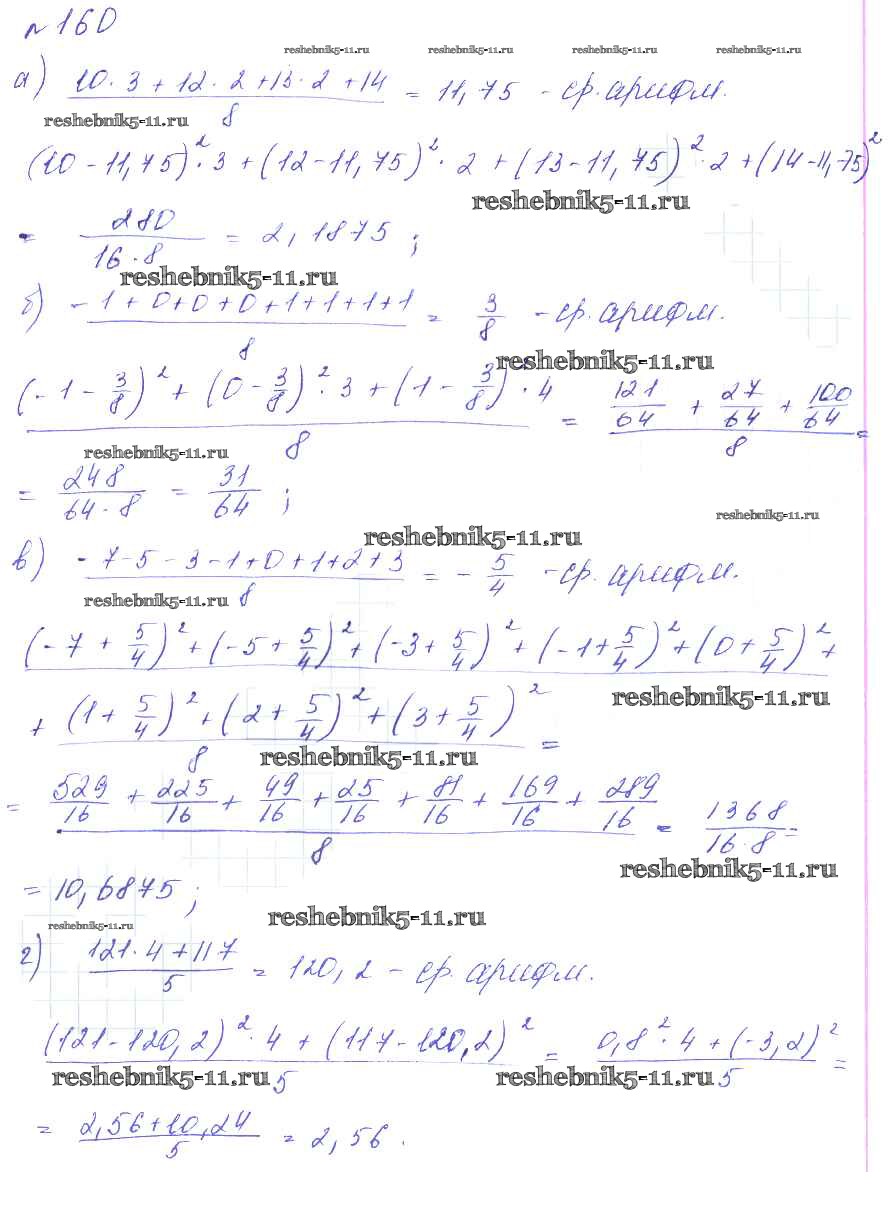 №160
reshebnik5-11.ru reshebnik5-11.ru reshebnik5-11.ru reshebnik5-11.ru
а) (10·3+12·2+13·2+14)/8 = 11,75 - ср. арифм.
reshebnik5-11.ru
(10-11,75)²·3+(12-11,75)²·2+(13-11,75)²·2+(14-11,75)²
reshebnik5-11.ru
= 280/(16·8) = 2,1875;
reshebnik5-11.ru
б) (-1+0+0+0+1+1+1+1)/8 = 3/8 - ср. арифм.
reshebnik5-11.ru
((-1-3/8)²+(0-3/8)²·3+(1-3/8)·4)/8 = (121/64+27/64+100/64)/8 =
reshebnik5-11.ru
= 248/(64·8) = 31/64;
reshebnik5-11.ru
reshebnik5-11.ru
в) (-7-5-3-1+0+1+2+3)/8 = -5/4 - ср. арифм.
reshebnik5-11.ru
(-7+5/4)²+(-5+5/4)²+(-3+5/4)²+(-1+5/4)²+(0+5/4)²+
reshebnik5-11.ru
+(1+5/4)²+(2+5/4)²+(3+5/4)²/8 =
reshebnik5-11.ru
= (529/16+225/16+49/16+25/16+81/16+169/16+289/16)/8 = 1368/(16·8) =
reshebnik5-11.ru
= 10,6875;
reshebnik5-11.ru
reshebnik5-11.ru
г) (121·4+117)/5 = 120,2 - ср. арифм.
((121-120,2)²·4+(117-120,2)²)/5 = (0,8²·4+(-3,2)²)/5 =
reshebnik5-11.ru reshebnik5-11.ru
= (2,56+10,24)/5 = 2,56.